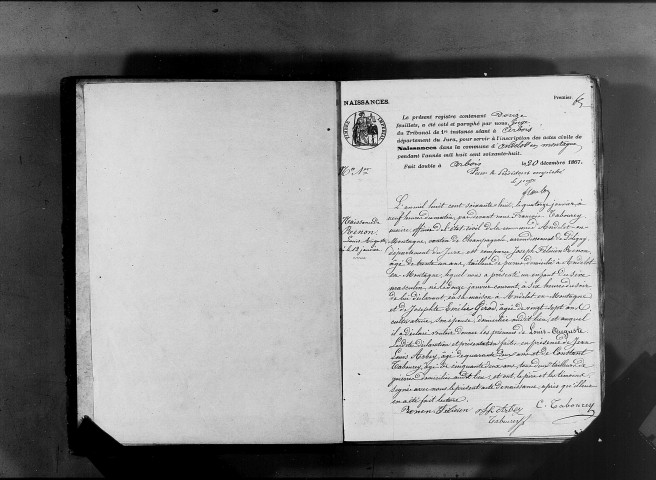 Premier.
NAISSANCES.
Le présent registre contenant Douze
feuillets, a été coté et paraphé par nous, juge
du Tribunal de 1re instance séant à Arbois
département du Jura, pour servir à l'inscription des actes civils de
Naissances dans la commune d'Andelot en montagne
pendant l'année mil huit cent soixante-huit.
Fait double à Arbois le 20 décembre 1867.
TIMBRE IMPERIAL
Pour le Président empêché
le juge
L'an mil huit cent soixante huit, le quatorze janvier, à
neuf heures du matin, par devant nous François Tabourey
maire, officier de l'état civil de la commune d'Andelot-en-
Montagne, canton de Champagnole, arrondissement de Poligny,
département du Jura, est comparu Joseph Félicien
âgé de trente un ans, tailleur de pierres domicilié à Andelot
en-Montagne, lequel nous a présenté un enfant du sexe
masculin, né le janvier courant, à six heures du soir
de lui déclarant, en sa maison à Andelot-en-Montagne
et de Josephte Girod, âgée de vingt-sept ans,
cultivatrice, son épouse, domiciliée audit lieu, et auquel
il a déclaré vouloir donner les prénoms de Louis-Auguste
Lesdites déclaration et présentation faites en présence de Jean
Louis Arbey, âgé de quarante ans et de Constant
Tabourey, âgé de cinquante deux ans, tous deux tailleurs de
pierres domiciliés audit lieu, et ont, le père et les témoins
signé avec nous le présent acte de naissance, après que
en a été fait lecture.
Félicien Arbey C. Tabourey
Tabourey
Naissance de
Louis Auguste